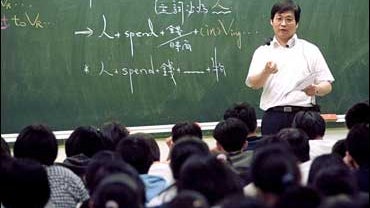 (主詞必為人
to VR...
人 + spend + 錢/時間 + (in) Ving...
* 人 + spend + 錢 + ___ +